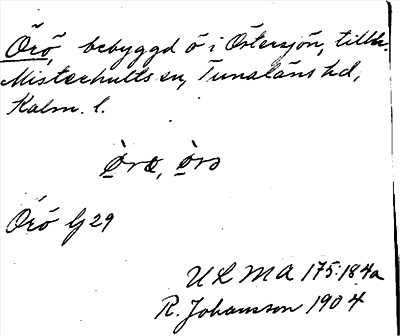 Örö, bebyggd ö i Östersjön, tillh.
Misterhults sn, Tunaläns hd,
Kalm. l.
Örö G 29
ULMA 175:184a
R. Johansson 1904